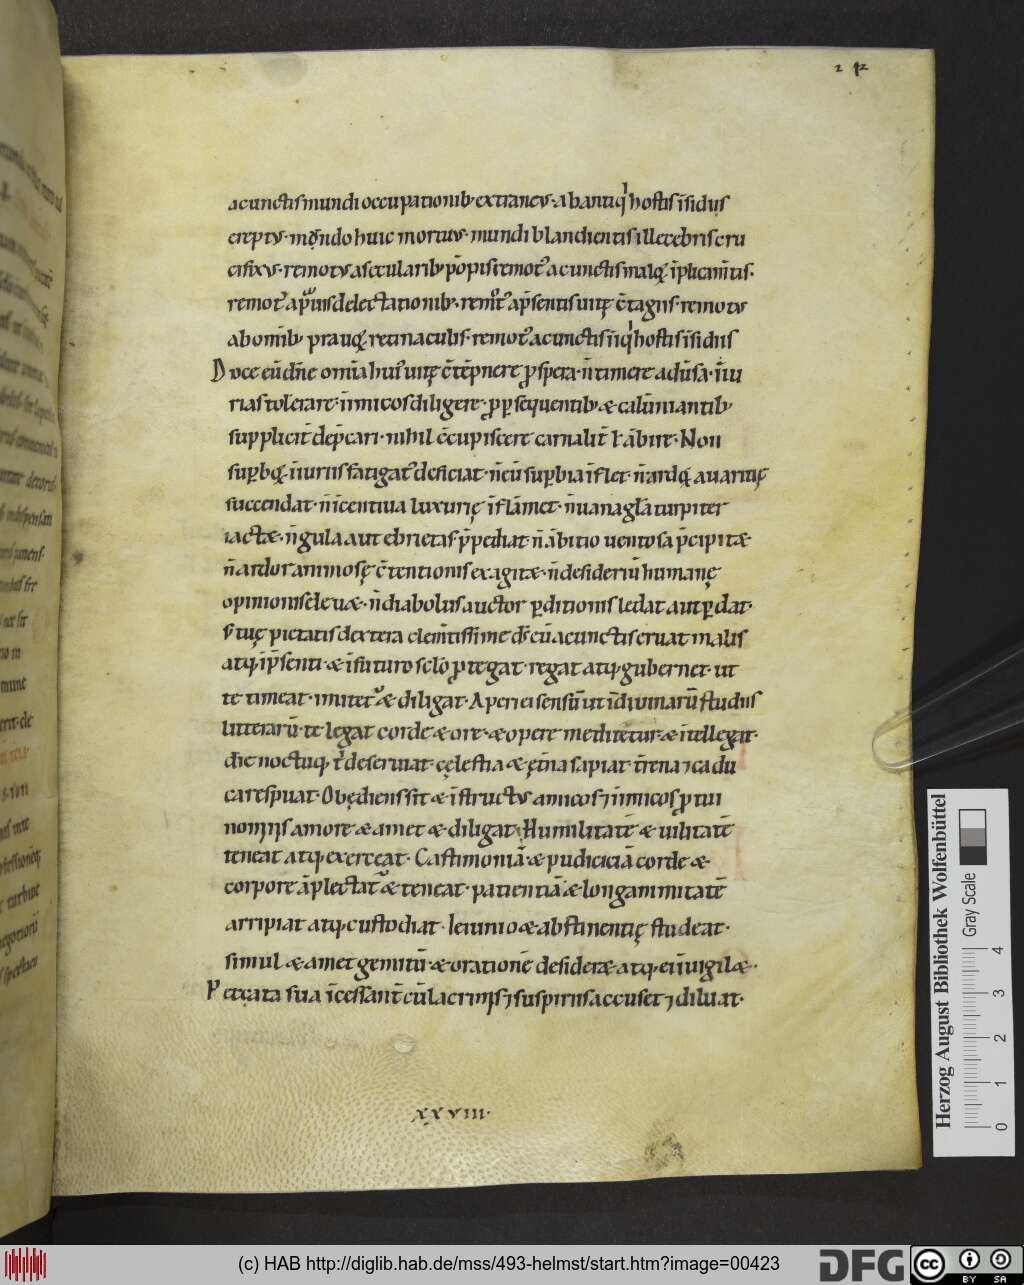 2 42
acunctis mundi occupationib; extraneus. ab antiq̍ hostis īsidiis
ereptus. mundo huic mortuus. mundi blandientis illecebris cru
cifixus. remotus a secularib; pōpis remot᾽ a cunctis malęq; īplicam̄tis.
remot᾽ a p̄uis delectationib;. remot᾽ a p̄sentis uitę c̄tagiis. remotus
ab om̄ib; prauęq; retinaculis. remot᾽ a cunctis inīq̍ hostis īsidiis
Doce eū dn̄e om̄ia hui᾽ uitę c̄tēpnere ꝓspera. n̄ timere aduersa. īiu
rias tolerare. inimicos diligere. ꝓ ꝑsequentib; & calūniantib;
supplicit᾽ dep̄cari. nihil c̄cupiscere carnalit᾽ ł ābire. Non
supbęq; iniuriis fatigat᾽ deficiat. n̄ eū supbia īflet. n̄ ardęq; auaritię
succendat. n̄ īcentiua luxurię īflāmet. n̄ uana gła turpiter
iactæ. n̄ gula aut ebrietas p̄pediat. n̄ ābitio uentosa p̄cipitæ
n̄ ardor animosę c̄tentionis exagitæ. n̄ desideriū humanę
opinionis eleuæ. n̄ diabolus auctor ꝑditionis ledat aut ꝑdat.
S; tuę pietatis dextera clem̄tissime d̄s eū a cunctis eruat malis
atq; ī p̄senti & ī futuro sclo ꝓtegat. regat atq; gubernet. ut
te timeat. imitet᾽ & diligat. Aperi ei sensū ut ī diuinarū studiis
litterarū. te legat corde & ore. & opere meditetur & ītellegat.
die noctuq; t̍ deseruiat. cęlestia & ęt̄na sapiat. t̄rena ⁊ cadu
ca respuat. Obędiens sit & īstructus amicos ⁊ inimicos ꝓ tui
nominis amore & amet & diligat. Humilitatē & uilitatē
teneat atq; exerceat. Castimoniā & pudiciciā corde &
corpore āplectat᾽ & teneat. patientiā & longanimitatē
arripiat atq; custodiat. Ieiunio & abstinentię studeat.
simul & amet gemitū. & orationē desideræ atq; ei īuigilæ.
Peccata sua īcessant᾽ cū lacrimis ⁊ suspiriis accuset ⁊ diluat.
XXVIII.
Herzog August Bibliothek Wolfenbüttel
Gray Scale
0 1 2 3 4
(c) HAB http://diglib.hab.de/mss/493-helmst/start.htm?image=00423
DFG
cc BY SA